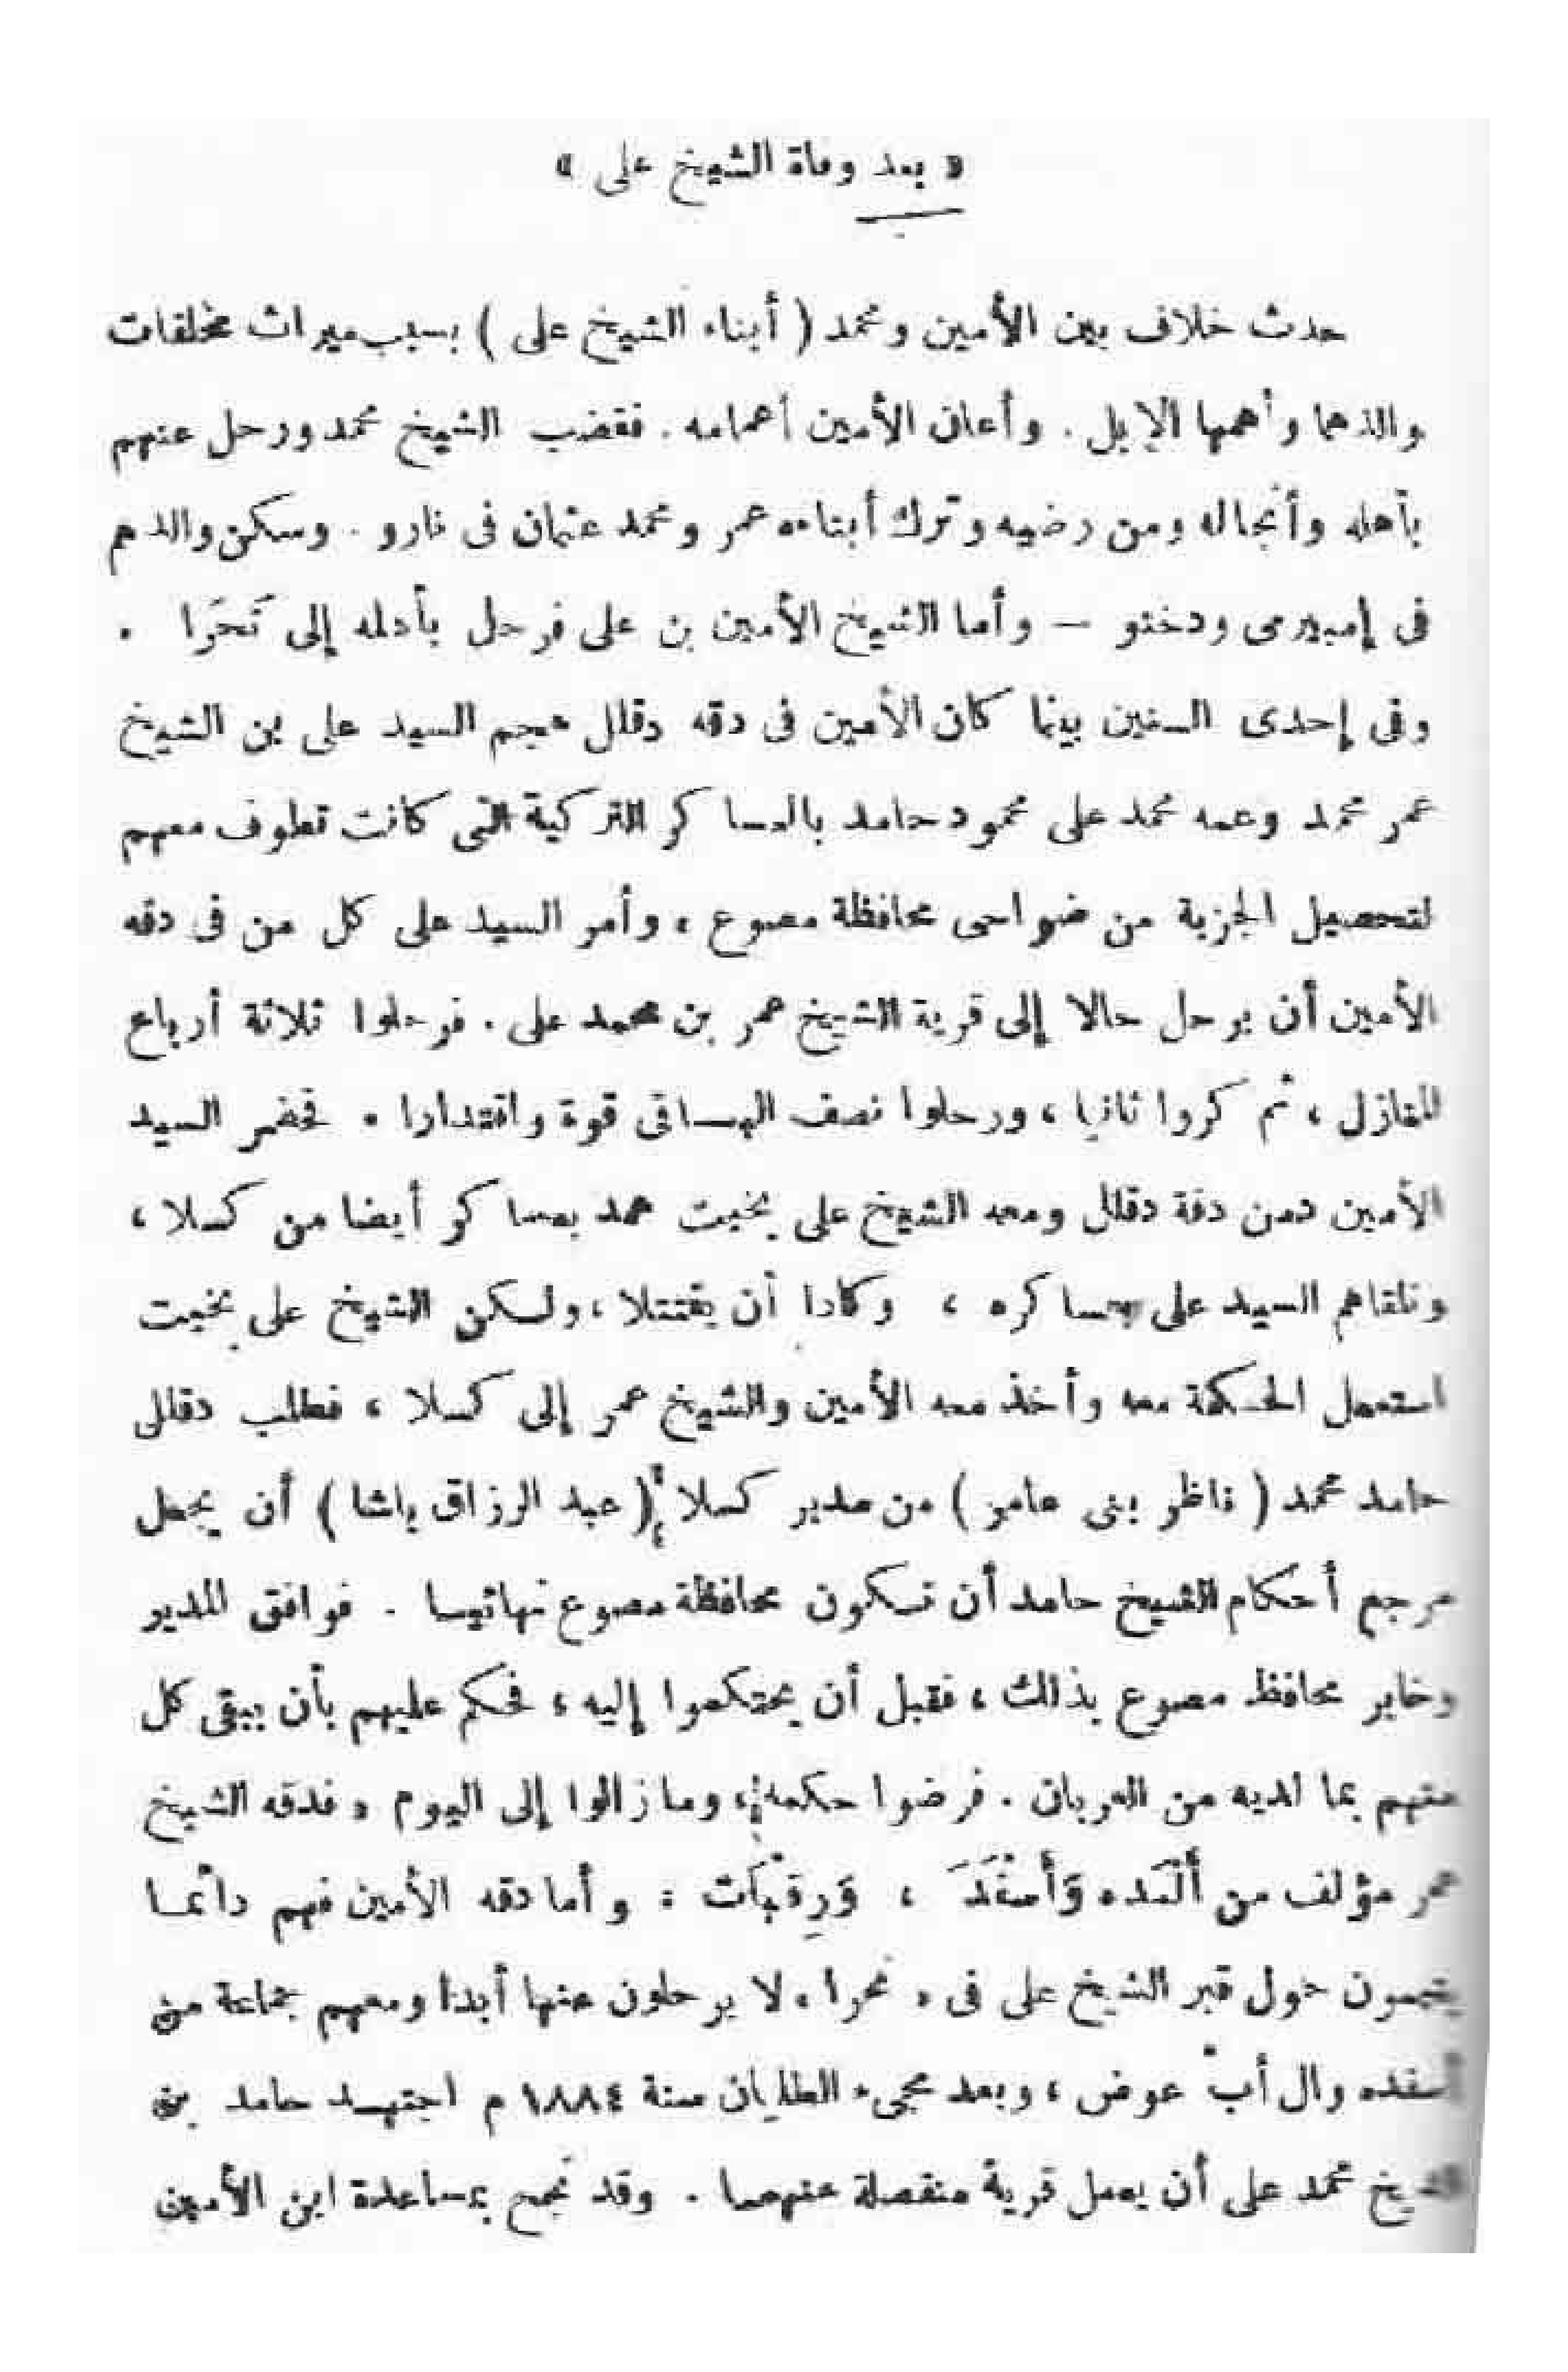 « بعد وفاة الشيخ على »
حدث خلاف بين الأمين ومحمد ( أبناء الشيخ على ) بسبب ميراث مخلفات
والدهما وأهمها الإبل . وأعان الأمين أعمامه . فغضب الشيخ محمد ورحل عنهم
بأهله وأنجاله ومن رضيه وترك أبناءه عمر ومحمد عثمان فى نارو . وسكن والدهم
فى إمبيرمى ودختو — وأما الشيخ الأمين بن على فرحل بأهله إلى نَحَرا .
وفى إحدى السنين بينما كان الأمين فى دقه دقلل هجم السيد على بن الشيخ
عمر محمد وعمه محمد على محمود حامد بالعساكر التركية التى كانت تطوف معهم
لتحصيل الجزية من ضواحى محافظة مصوع ، وأمر السيد على كل من فى دقه
الأمين أن يرحل حالا إلى قرية الشيخ عمر بن محمد على . فرحلوا ثلاثة أرباع
المنازل ، ثم كروا ثانيا ، ورحلوا نصف الباقى قوة واقتدارا . فحضر السيد
الأمين دمن دقة دقلل ومعه الشيخ على بخيت حمد بعساكر أيضا من كسلا ،
وتلقاهم السيد على بعساكره ، وكادا أن يقتتلا ، ولكن الشيخ على بخيت
استعمل الحكمة معه وأخذ معه الأمين والشيخ عمر إلى كسلا ، فطلب دقللى
حامد محمد ( ناظر بنى عامر ) من مدير كسلا ( عبد الرزاق باشا ) أن يجعل
مرجع أحكام الشيخ حامد أن تكون محافظة مصوع نهائيا . فوافق المدير
وخابر محافظ مصوع بذلك ، فقبل أن يحتكموا إليه ، فحكم عليهم بأن يبقى كل
منهم بما لديه من العربان . فرضوا حكمه ، وما زالوا إلى اليوم « فدقه الشيخ
عمر مؤلف من أَلْمَده وَأَسْفَدَ ، وَرِقْبَات : وأما دقه الأمين فهم دائما
يقيمون حول قبر الشيخ على فى « نحرا » لا يرحلون عنها أبدا ومعهم جماعة من
أسفده وال أبّ عوض ، وبعد مجىء الطليان سنة ١٨٨٤ م اجتهد حامد بن
الشيخ محمد على أن يعمل قرية منفصلة عنهما . وقد نجح بمساعدة ابن الأمين